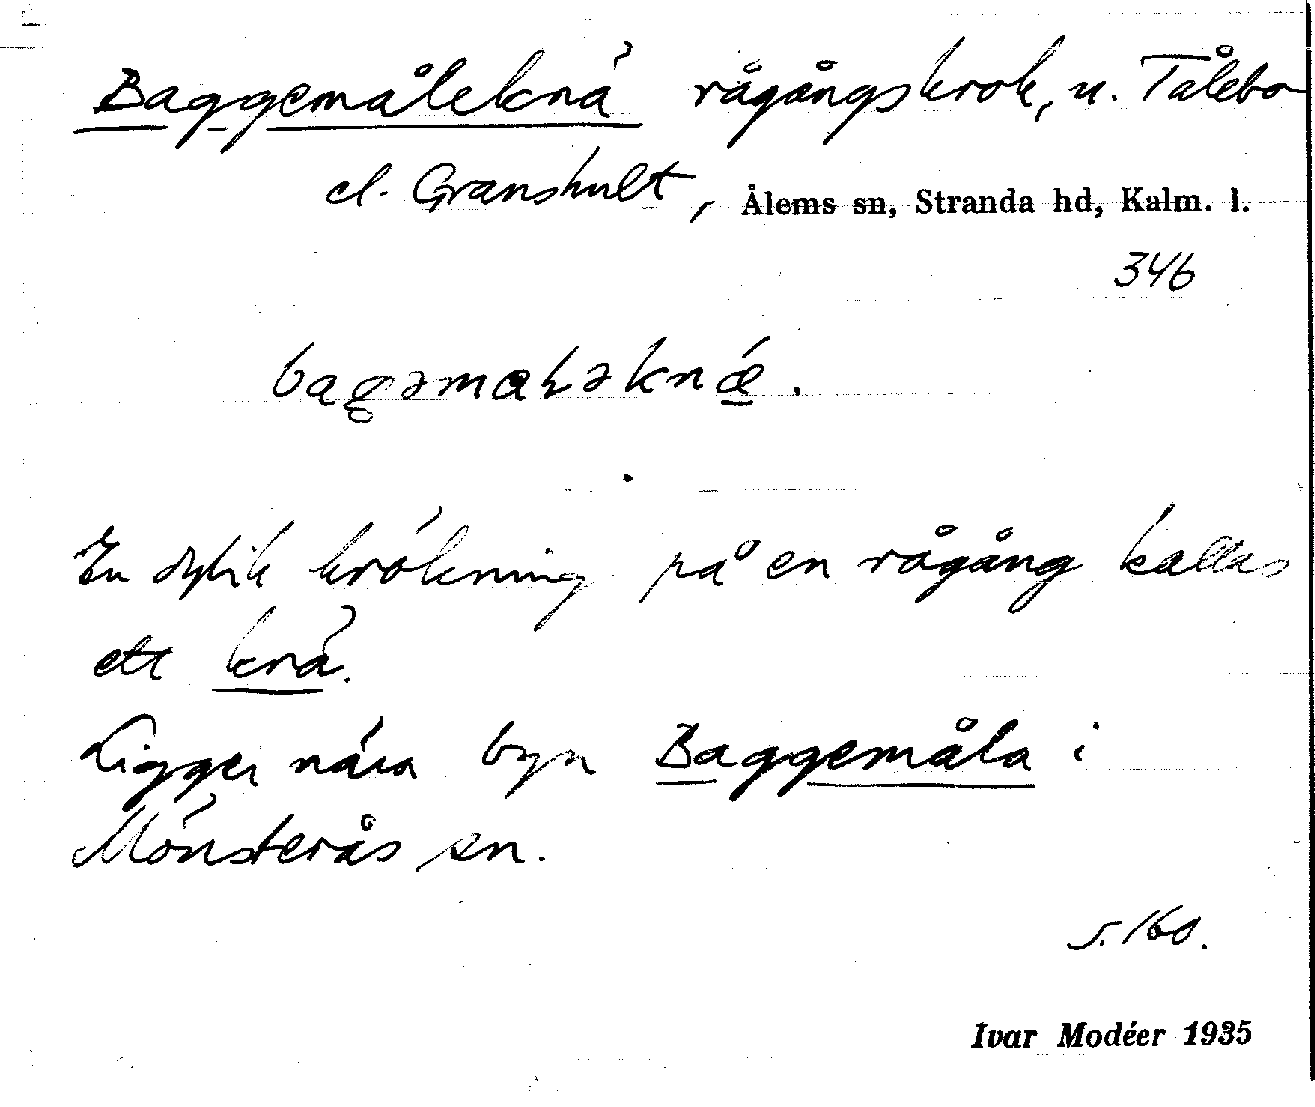 Baggemåleknä rågångskrok, u. Tålebo
el. Granshult, Ålems sn, Stranda hd, Kalm. l.
346
En dylik krökning på en rågång kallas
ett knä.
Ligger nära byn Baggemåla i
Mönsterås sn.
s. 160.
Ivar Modéer 1935